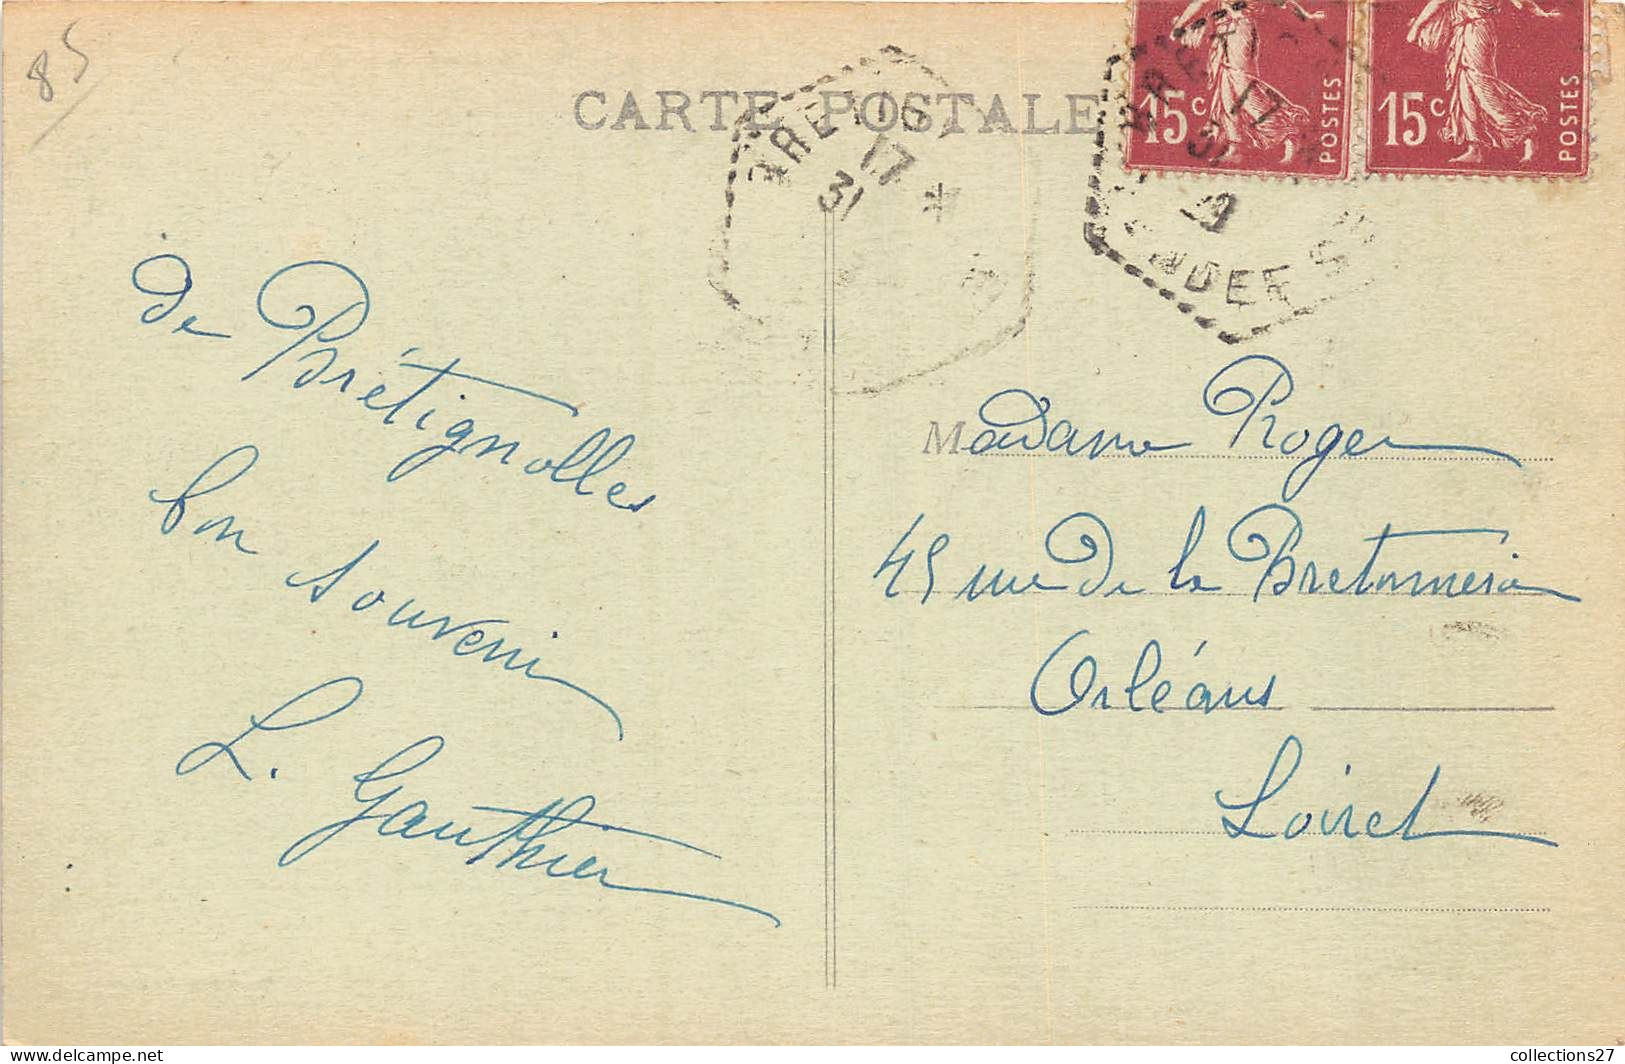 85
CARTE POSTALE
15c POSTES
15c POSTES
17
31
17
de Brétignolles
bon souvenir
L. Gauthier
Madame Roger
45 rue de la Bretonnerie
Orléans
Loiret
collections27